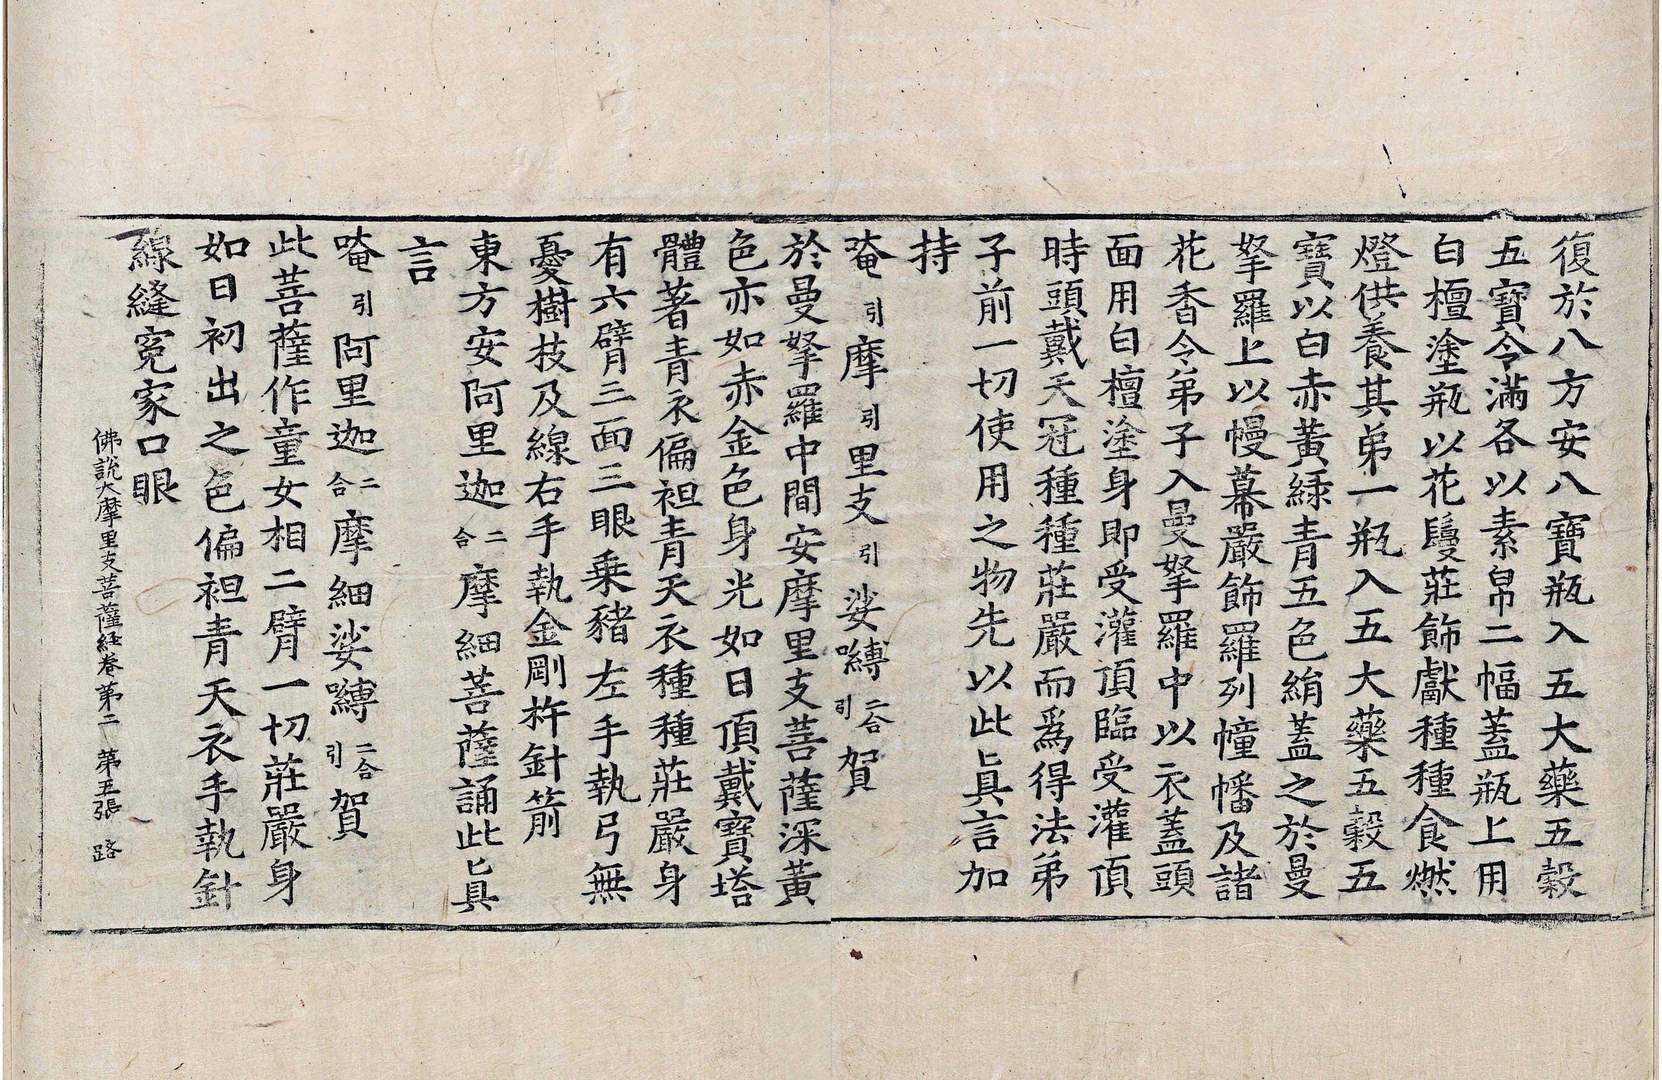 復於八方安八寶瓶入五大藥五穀
五寶令滿各以素帛二幅蓋瓶上用
白檀塗瓶以花鬘莊飾獻種種食燃
燈供養其弟一瓶入五大藥五穀五
寶以白赤黃綠青五色絹蓋之於曼
拏羅上以幔幕嚴飾羅列幢幡及諸
花香令弟子入曼拏羅中以衣蓋頭
面用白檀塗身即受灌頂臨受灌頂
時頭戴天冠種種莊嚴而為得法弟
子前一切使用之物先以此真言加
持
唵引摩引里支引娑嚩二合引賀
於曼拏羅中間安摩里支菩薩深黃
色亦如赤金色身光如日頂戴寶塔
體著青衣偏袒青天衣種種莊嚴身
有六臂三面三眼乗豬左手執弓無
憂樹枝及線右手執金剛杵針箭
東方安阿里迦二合摩細菩薩誦此真
言
唵引阿里迦二合摩細娑嚩二合引賀
此菩薩作童女相二臂一切莊嚴身
如日初出之色偏袒青天衣手執針
線縫冤家口眼
佛說大摩里支菩薩經卷第二 第五張 路